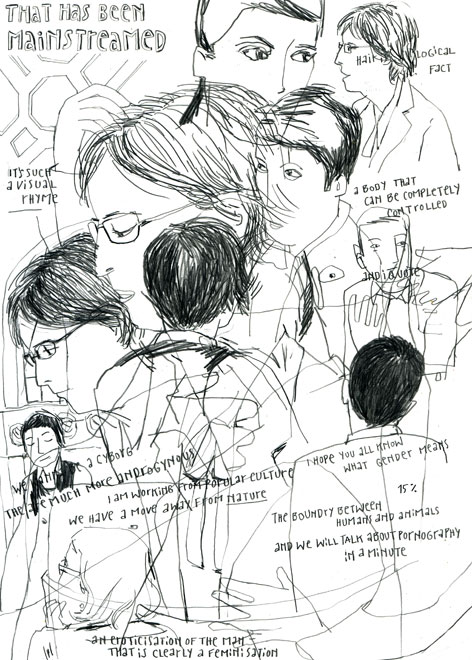 THAT HAS BEEN
MAINSTREAMED
HAIR IS LOGICAL
FACT
IT'S SUCH
A VISUAL
RHYME
A BODY THAT
CAN BE COMPLETELY
CONTROLLED
AND I QUOTE
WE MIGHT BE A CYBORG
THEY'RE MUCH MORE ANDROGYNOUS
I AM WORKING FROM POPULAR CULTURE
WE HAVE A MOVE AWAY FROM NATURE
I HOPE YOU ALL KNOW
WHAT GENDER MEANS
15%
THE BOUNDRY BETWEEN
HUMANS AND ANIMALS
AND WE WILL TALK ABOUT PORNOGRAPHY
IN A MINUTE
AN EROTICISATION OF THE MAN
THAT IS CLEARLY A FEMINISATION